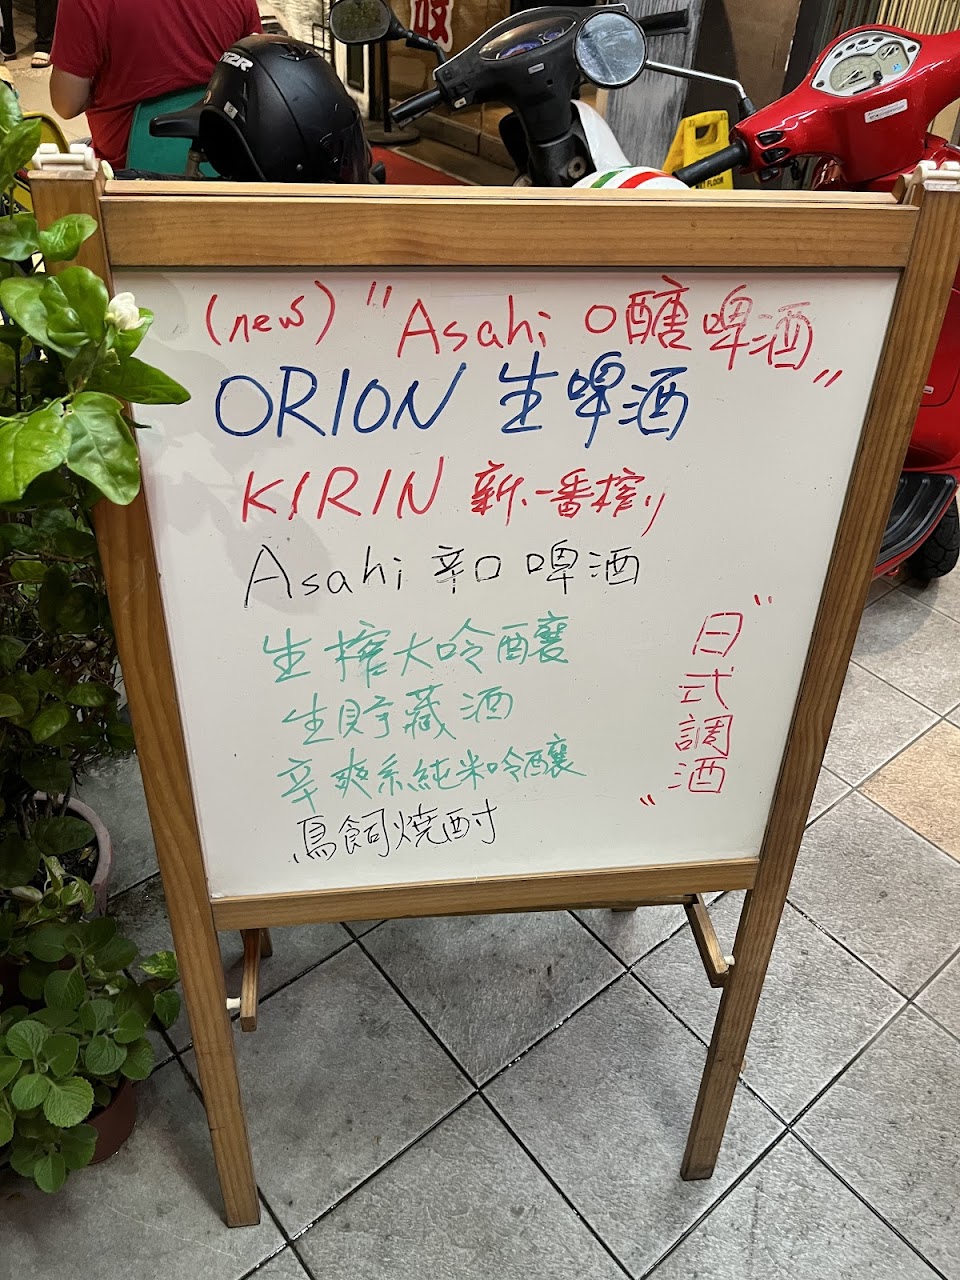 (new) "Asahi 0醣啤酒"
ORION 生啤酒
KIRIN 新一番搾り
Asahi 辛口 啤酒
生榨大吟釀
生貯藏酒
辛爽系純米吟釀
鳥飼燒酎
"日式調酒"